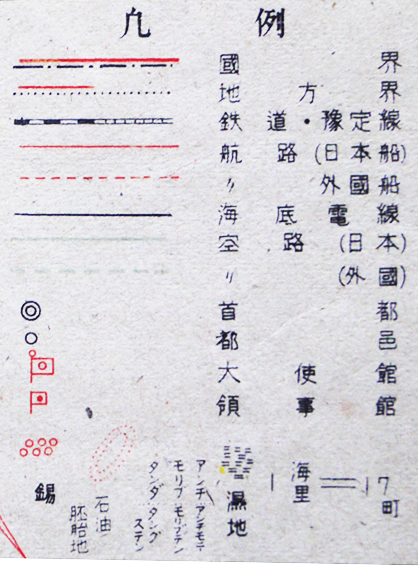 凡例
國界
地方界
鉄道・豫定線
航路(日本船)
〃 外國船
海底電線
空路(日本)
〃 (外國)
首都
都邑
大使館
領事館
1海里=17町
濕地
アンチ アンチモニ
モリブ モリブデン
タング タング
ステン
石油
胚胎地
錫